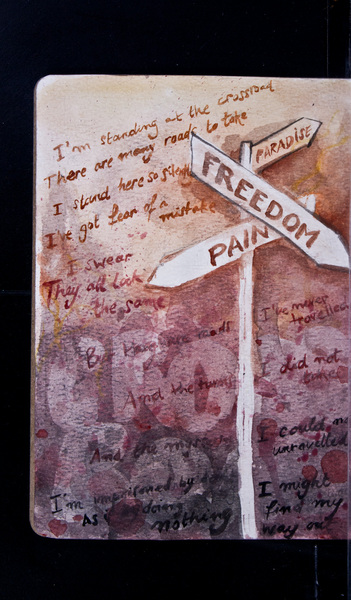 I'm standing at the crossroad
There are many roads to take
I stand here so silently
I've got fear of a
mistake
I swear
They all look
the same
PARADISE
FREEDOM
PAIN
But there are roads
I've never
travelled
And the turns
I did not
take
And the
I could no
unravelled
I'm imprisoned by
As I doing
nothing
I might
find my
way ou